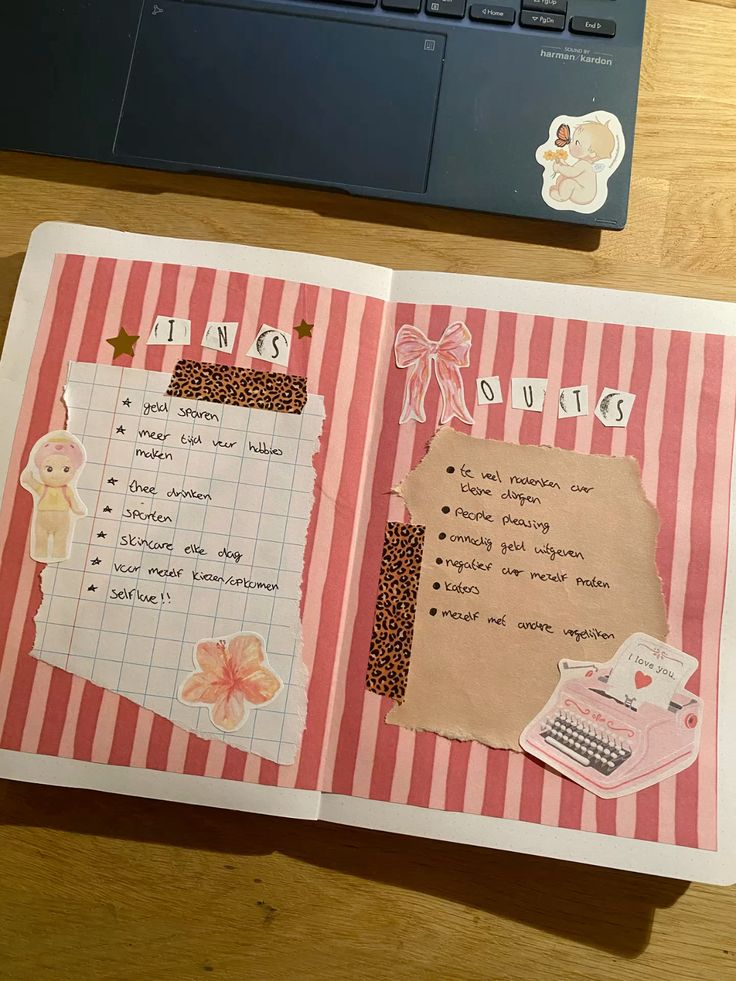 PgUp
Home
PgDn
End
SOUND BY
harman/kardon
INS
geld sparen
meer tijd voor hobbies
maken
thee drinken
sporten
skincare elke dag
voor mezelf kiezen/opkomen
selflove!!
OUTS
te veel nadenken over
kleine dingen
people pleasing
onnodig geld uitgeven
negatief over mezelf praten
katers
mezelf met andere vergelijken
I love you.